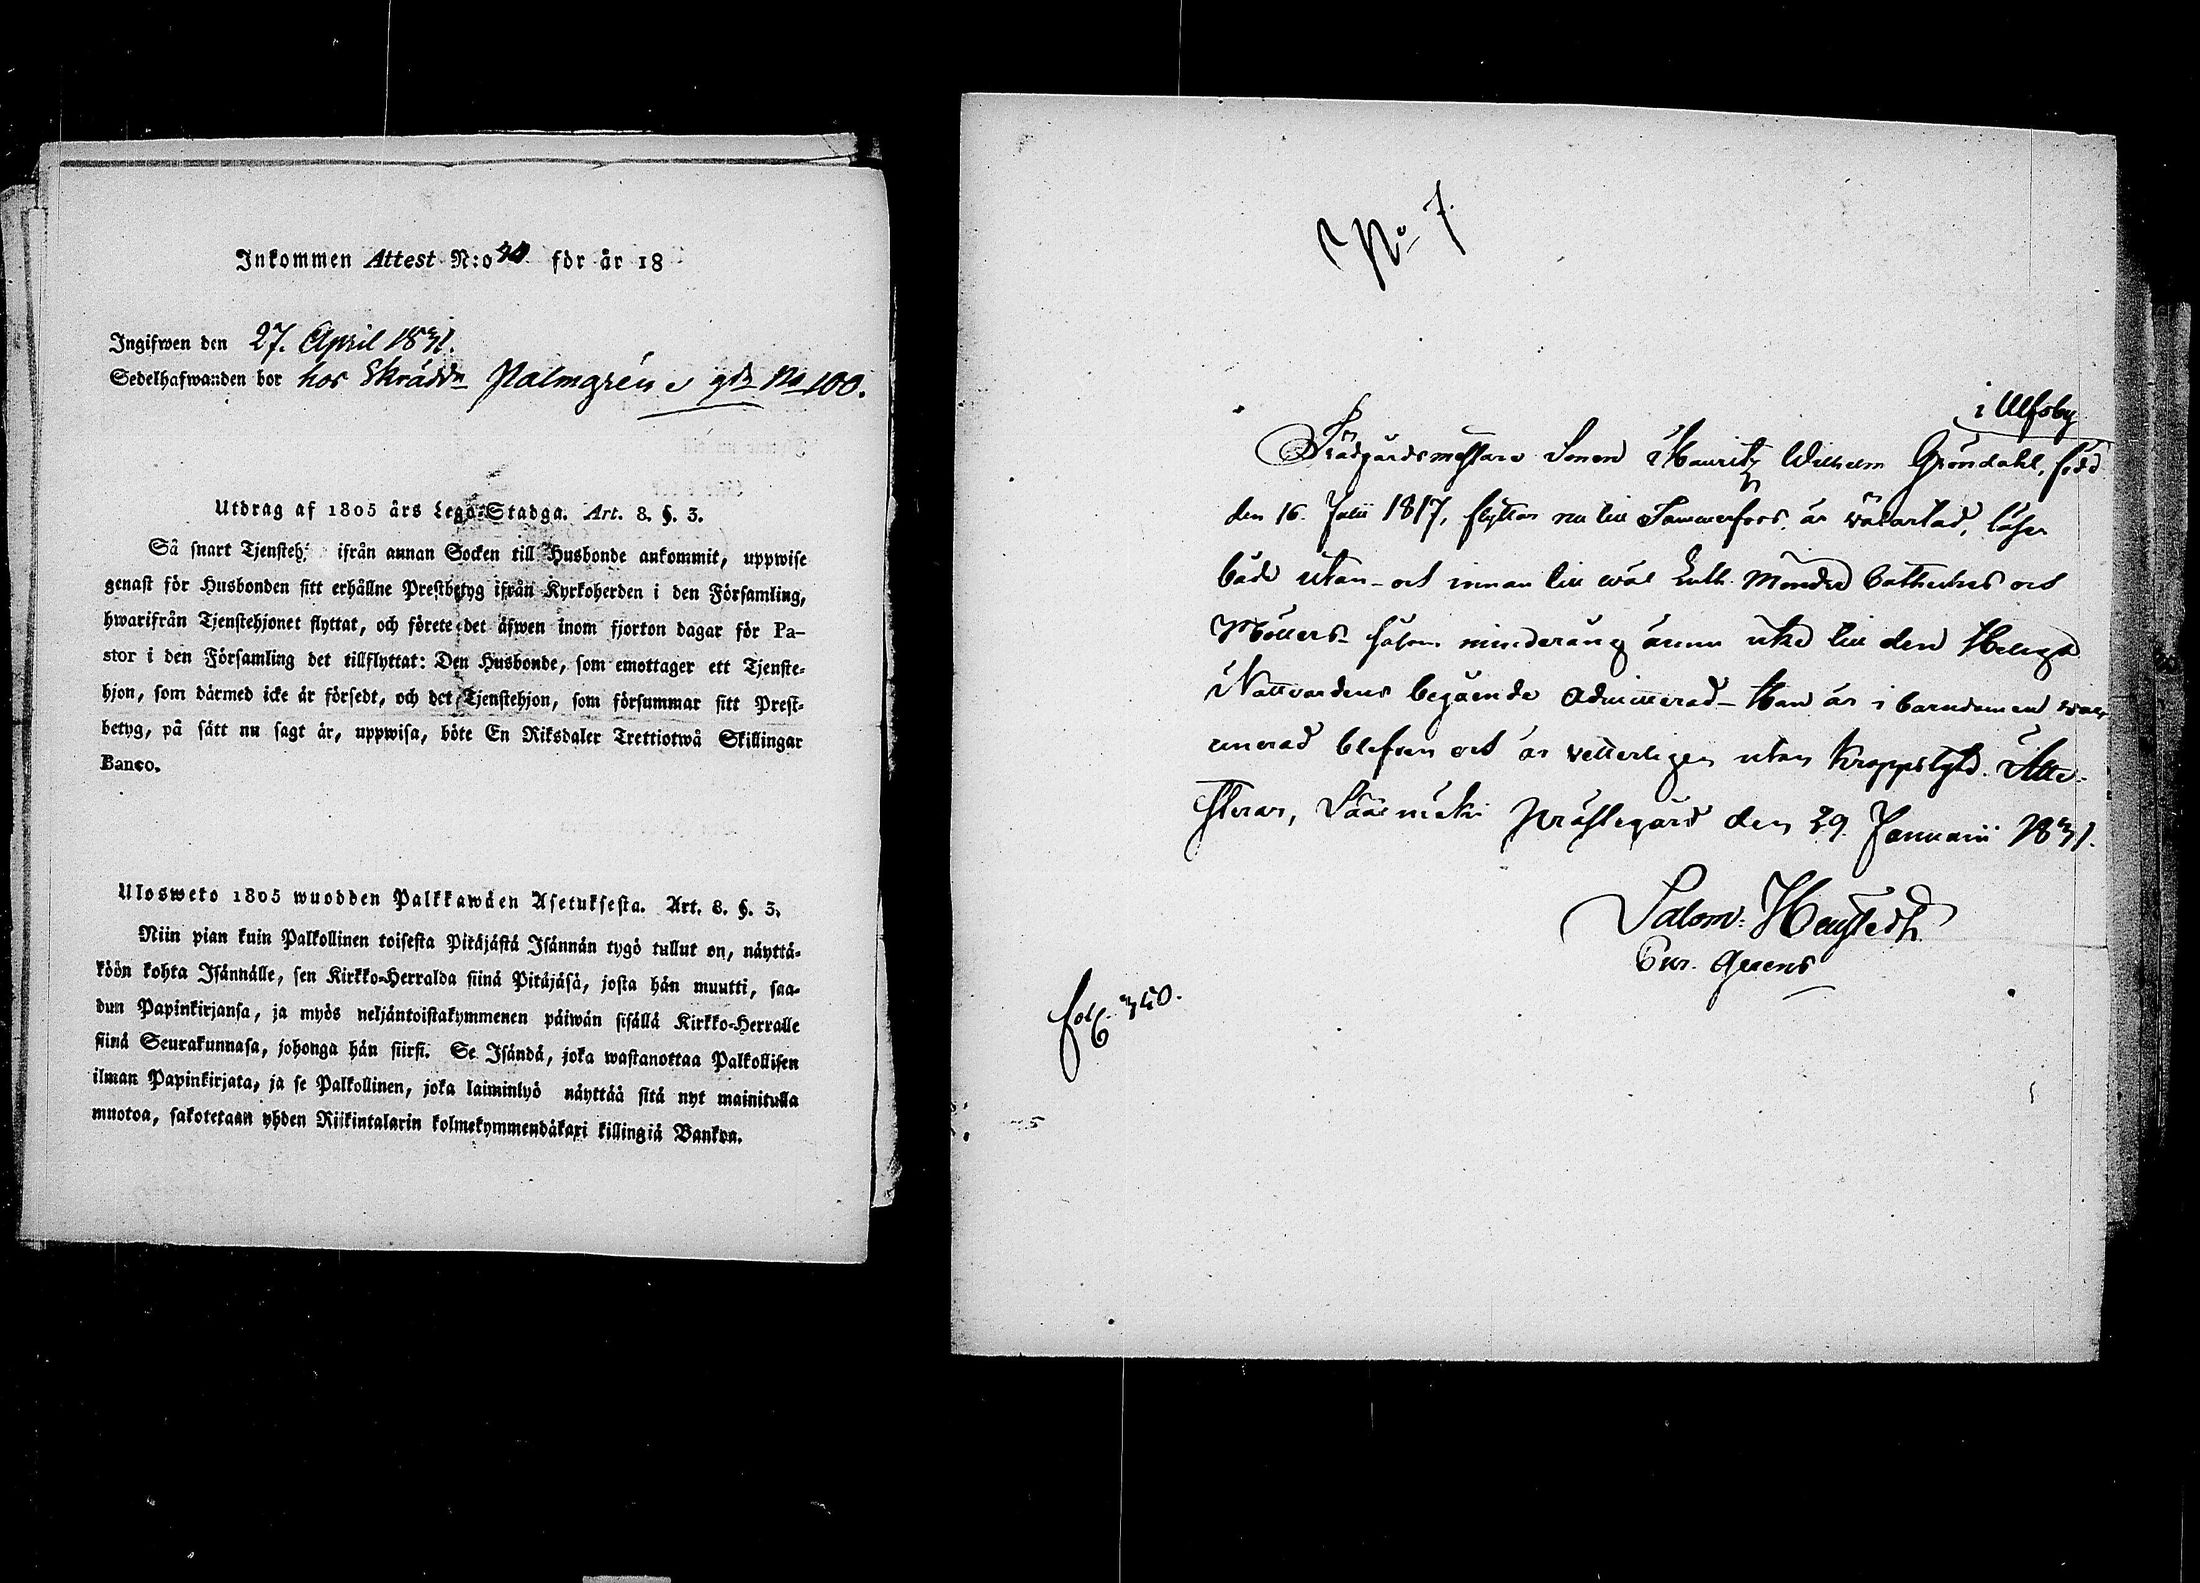 Inkommen Attest N:o 40 för år 18
Ingifwen den 27. April 1831.
Sedelhafwanden bor hos Skrädd. Palmgren i gdn No 100.
Utdrag af 1805 års Lego-Stadga. Art. 8. §. 3.
Så snart Tjensteh ifrån annan Socken till Husbonde ankommit, uppwise
genast för Husbonden sitt erhållne Prestbetyg ifrån Kyrkoherden i den Församling,
hwarifrån Tjenstehjonet flyttat, och förete det äfwen inom fjorton dagar för Pa-
stor i den Församling det tillflyttat: Den Husbonde, som emottager ett Tjenste-
hjon, som därmed icke är försedt, och det Tjenstehjon, som försummar sitt Prest-
betyg, på sätt nu sagt är, uppwisa, böte En Riksdaler Trettiotwå Skillingar
Banco.
Ulosweto 1805 wuodden Palkkawäen Asetuksesta. Art. 8. §. 3.
Niin pian kuin Palkollinen toisesta Pitäjästä Isännän tygö tullut on, näyttä-
köön kohta Isännälle, sen Kirkko-Herralda siinä Pitäjäsä, josta hän muutti, saa-
dun Papinkirjansa, ja myös neljäntoistakymmenen päiwän sisällä Kirkko-Herralle
siinä Seurakunnasa, johonga hän siirsi. Se Isändä, joka wastanottaa Palkollisen
ilman Papinkirjata, ja se Palkollinen, joka laiminlyö näyttää sitä nyt mainitulla
muotoa, sakotetaan yhden Riikintalarin kolmekymmendäkaxi killingiä Bankon.
No 7
i Ulfsby
Trädgårdsmästare Sonen Mauritz Wilhelm Gröndahl, född
den 16. Julii 1817, flyttar nu till Tammerfors, är wälartad, läser
både utan- och innan till wäl Luth. Mindre Cathekes och
Möllers- såsom minderårig ännu icke till den Heliga
Nattvardens begående admitterad- Han är i barndomen wacc
cinerad blefven och är vetterligen utan kroppslyte. Atte-
sterar, Sääxmäki Prästegård den 29. Januarii 1831.
Salom: Hengstedt
Cur. Gerens
fol. 340.